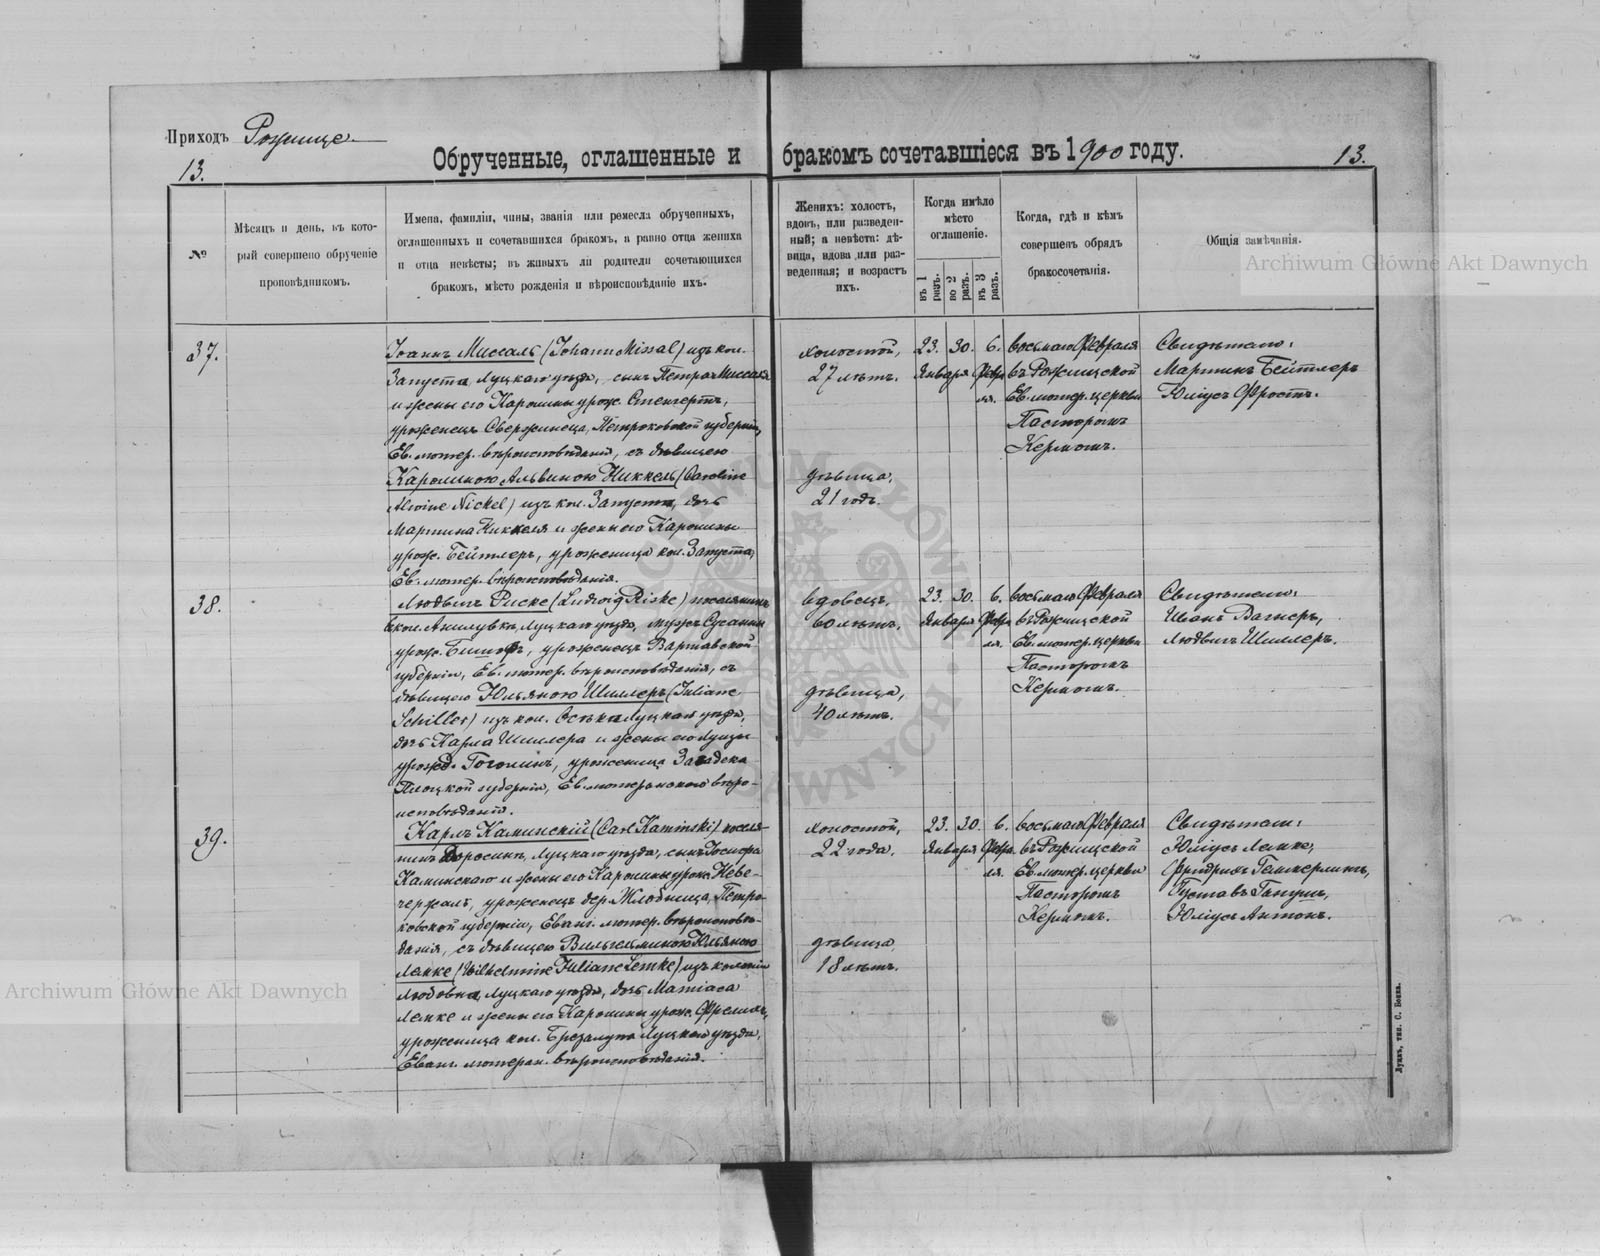 Приходъ Рожище
13.
Обрученные, оглашенные и бракомъ сочетавшіеся въ 1900 году.
13.
№
Мѣсяцъ и день, въ кото-
рый совершено обрученіе
проповѣдникомъ.
Имена, фамиліи, чины, званія или ремесла обрученныхъ,
оглашенныхъ и сочетавшихся бракомъ, а равно отца жениха
и отца невѣсты; въ живыхъ ли родители сочетающихся
бракомъ, мѣсто рожденія и вѣроисповѣданіе ихъ.
Женихъ: холостъ,
вдовъ, или разведен-
ный; а невѣста: дѣ-
вица, вдова или раз-
веденная; и возрастъ
ихъ.
Когда имѣло
мѣсто
оглашеніе.
въ 1 разъ.
во 2 разъ.
въ 3 разъ.
Когда, гдѣ и кѣмъ
совершенъ обрядъ
бракосочетанія.
Общія замѣчанія.
Archiwum Główne Akt Dawnych
37.
Іоаннъ Миссаль (Johann Missal) изъ кол.
Запуста Луцкаго уѣзда, сынъ Петра Миссаля
и жены его Каролины урож. Стенгертъ,
уроженецъ Свержинеца, Петроковской губерніи,
Ев. лютер. вѣроисповѣданія, съ дѣвицею
Каролиною Альвиною Никкель (Caroline
Alwine Nickel) изъ кол. Запуста, дочь
Мартина Никкеля и жены его Каролины
урож. Бейтлеръ, уроженица кол. Запуста,
Ев. лютер. вѣроисповѣданія.
холостой,
27 лѣтъ.
дѣвица,
21 годъ.
23. 30. 6.
Января Февра
ля.
восьмаго Февраля
въ Рожищской
Ев. лютер. церкви
Пасторомъ
Кермомъ.
Свидѣтели:
Мартинъ Бейтлеръ
Юліусъ Фростъ.
38.
Людвигъ Риске (Ludwig Riske) поселянинъ
кол. Анилувка, Луцкаго уѣзда, мужъ Сусанны
урож. уроженецъ Варшавской
губерніи, Ев. лютер. вѣроисповѣданія, съ
дѣвицею Юльяною Шиллеръ (Juliane
Schiller) изъ кол. Осѣка Луцкаго уѣзда,
дочь Карла Шиллера и жены его Луизы
урожд. Гоголинъ, уроженица
Плоцкой губерніи, Ев. лютеранскаго вѣро-
исповѣданія.
вдовецъ,
60 лѣтъ.
дѣвица,
40 лѣтъ.
23. 30. 6.
Января Февра
ля.
восьмаго Февраля
въ Рожищской
Ев. лютер. церкви
Пасторомъ
Кермомъ.
Свидѣтели:
Иванъ Вагнеръ,
Людвигъ Шиллеръ.
39.
Карлъ Каминскій (Carl Kaminski) поселя-
нинъ Доросинъ, Луцкаго уѣзда, сынъ
Каминскаго и жены его Каролины урож. Неве-
чержалъ, уроженецъ дер. Жлобница, Петро-
ковской губерніи, Еванг. лютер. вѣроисповѣ-
данія, съ дѣвицею Вильгельминою Юльяною
Лемке (Wilhelmine Juliane Lemke) изъ колоніи
Любовка, Луцкаго уѣзда, дочь Матіаса
Лемке и жены его Каролины урож.
уроженица кол. Луцкаго уѣзда,
Еванг. лютеран. вѣроисповѣданія.
холостой,
22 года.
дѣвица
18 лѣтъ.
23. 30. 6.
Января Февра
ля.
восьмаго Февраля
въ Рожищской
Ев. лютер. церкви
Пасторомъ
Кермомъ.
Свидѣтели:
Юліусъ Лемке,
Фридрихъ
Густавъ
Юліусъ Антонъ.
Archiwum Główne Akt Dawnych
Луцкъ, тип. С. Бокка.